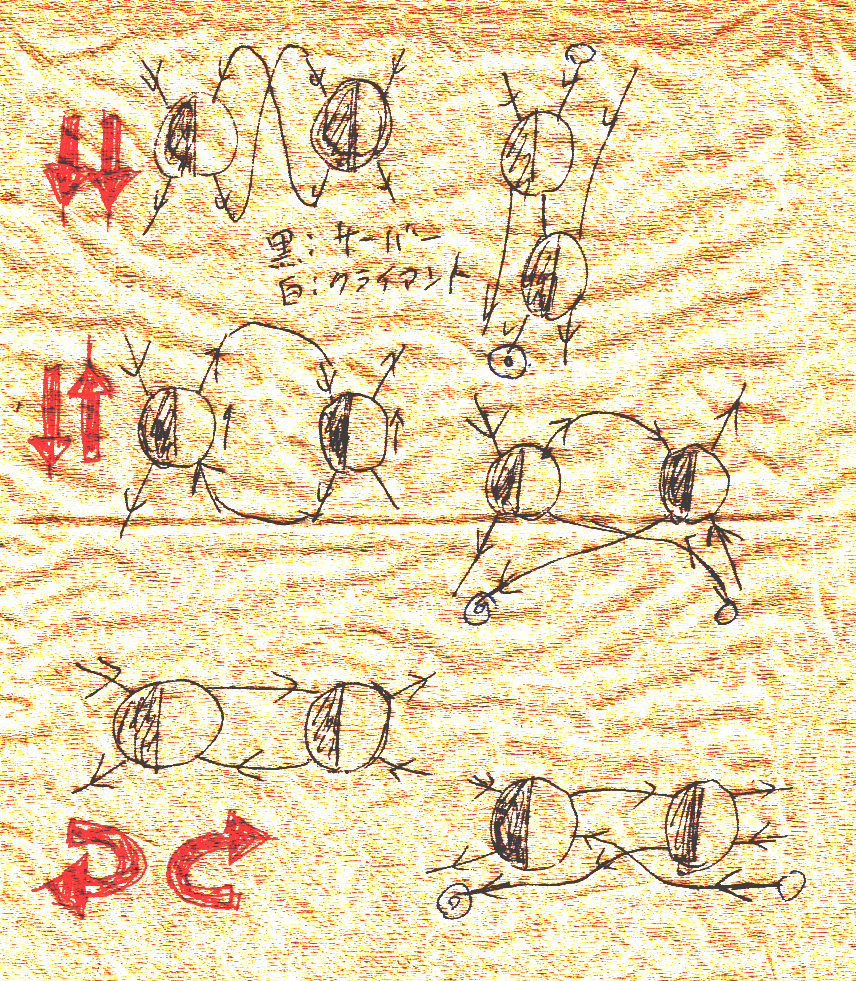 黒:サーバー
白:クライアント